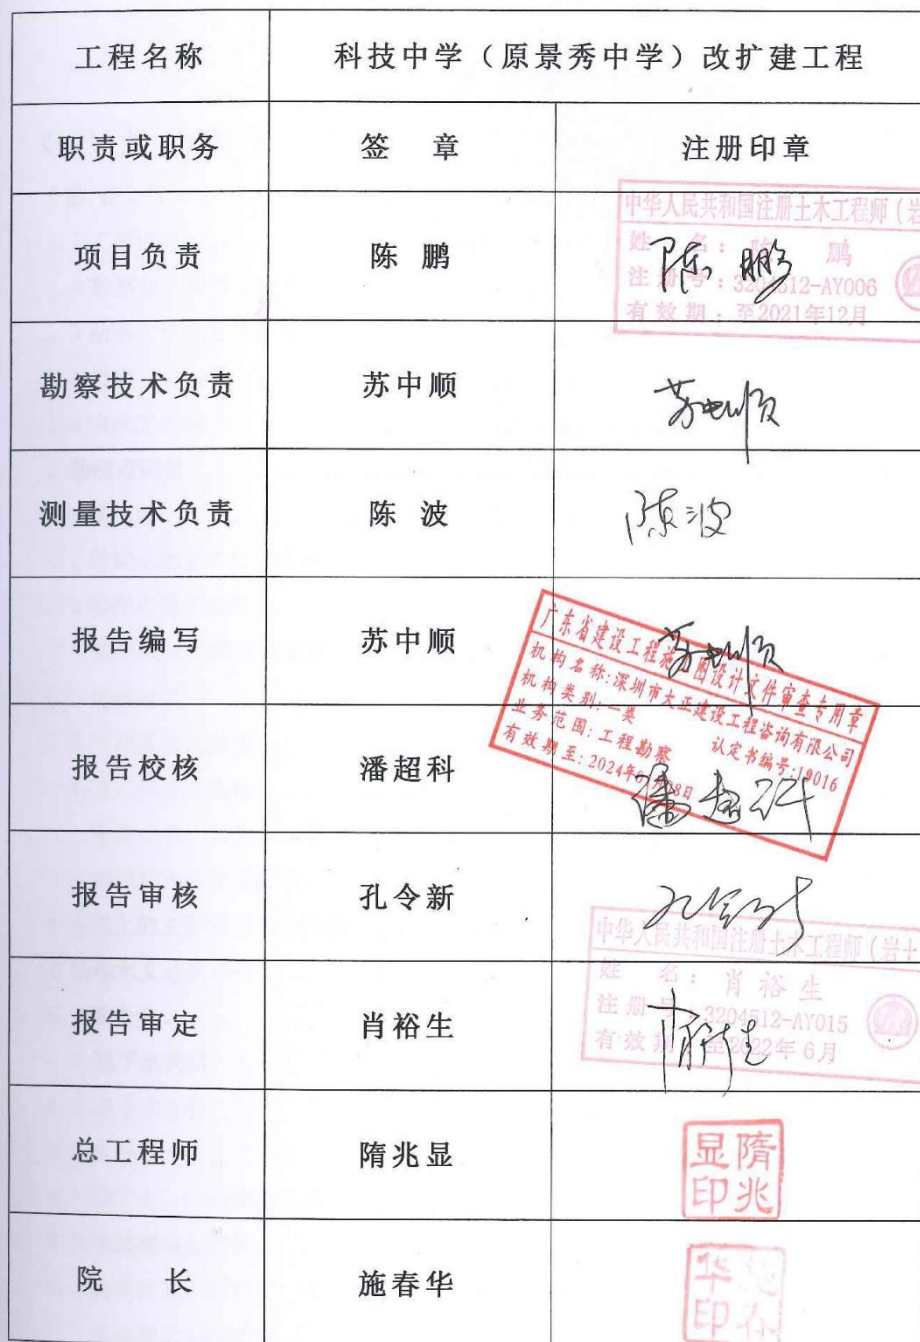 工程名称 科技中学（原景秀中学）改扩建工程
职责或职务 签 章 注册印章
中华人民共和国注册土木工程师（岩
项目负责 陈 鹏 陈鹏
姓 名：陈 鹏
注册号：3204512-AY006
有效期：至2021年12月
勘察技术负责 苏中顺 苏中顺
测量技术负责 陈 波 陈波
报告编写 苏中顺 苏中顺
广东省建设工程施工图设计文件审查专用章
机构名称:深圳市大正建设工程咨询有限公司
机构类别:一类 认定书编号:19016
业务范围:工程勘察
有效期至:2024年6月28日
报告校核 潘超科 潘超科
报告审核 孔令新 孔令新
中华人民共和国注册土木工程师（岩土
姓 名：肖裕生
注册号：3204512-AY015
有效期：至2022年6月
报告审定 肖裕生 肖裕生
总工程师 隋兆显 隋兆显印
院 长 施春华 施春华印